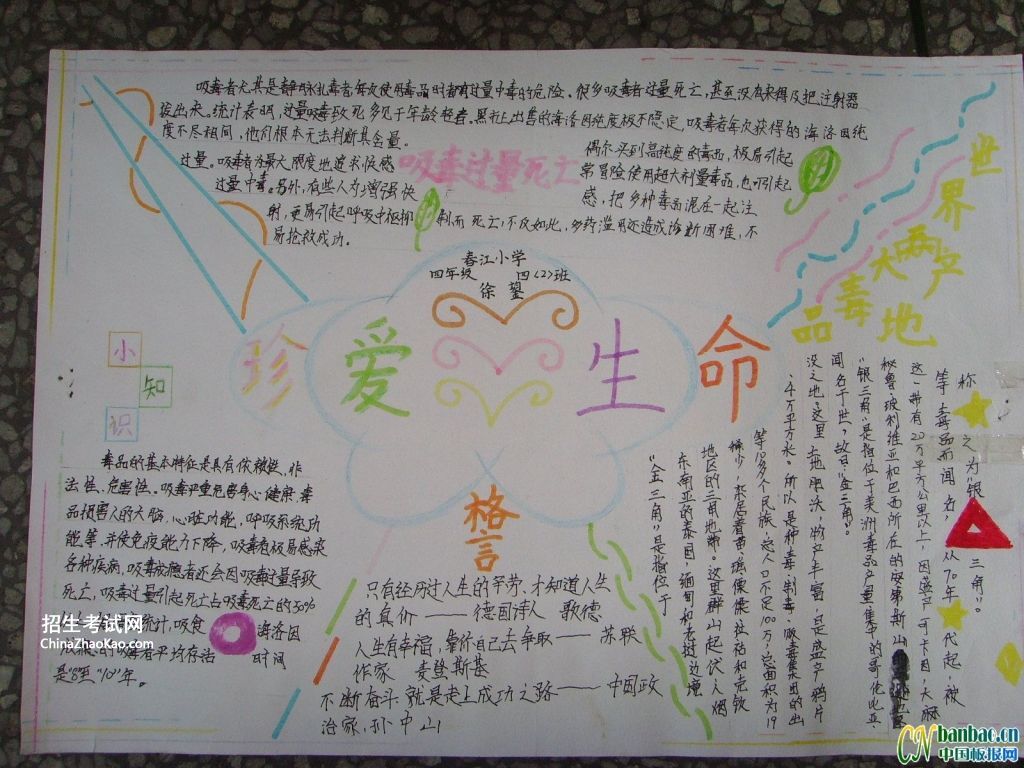 吸毒者尤其是静脉扎毒者每次使用毒品时都有过量中毒的危险。很多吸毒者过量死亡,甚至没有来得及把注射器
拔出来。统计表明,过量吸毒致死多见于年龄轻者。黑市上出售的海洛因纯度极不稳定,吸毒者每次获得的海洛因纯
度不尽相同,他们根本无法判断其含量。
偶尔买到高纯度的毒品,极易引起
过量。吸毒者为最大限度地追求快感
常冒险使用超大剂量毒品,也可引起
吸毒过量死亡
过量中毒。另外,有些人为增强快
感,把多种毒品混在一起注
射,更易引起呼吸中枢抑
制而死亡;不仅如此,多药滥用还造成诊断困难,不
易抢救成功。
春江小学
四年级 四〈2〉班
徐
珍爱生命
世界两大毒品产地
小知识
毒品的基本特征是具有依赖性、非
法性、危害性。吸毒严重危害身心健康,毒
品损害人的大脑,心脏功能,呼吸系统功
能等,并使免疫能力下降,吸毒者极易感染
各种疾病,吸毒成瘾者还会因吸毒过量导致
死亡,吸毒过量引起死亡占吸毒死亡的30%
统计,吸食 海洛因
吸毒者平均存活 时间
是"8至"10"年。
格言
只有经历过人生的平劳,才知道人生
的真价——德国诗人 歌德
人生有幸福,靠你自己去争取——苏联
作家 麦登斯基
不断奋斗就是走上成功之路——中国政
治家,孙中山
"金三角"是指位于
东南亚的泰国,缅甸和老挝边境
地区的三角地带。这里群山起伏人烟
稀少,聚居着苗、瑶、傈僳、拉祜和克钦
等10多个人民族,总人口不足100万,总面积为19
.4万平方米。所以是种毒、制毒、贩毒集团的出
没之地。这里土地肥沃,物产丰富,自是盛产鸦片
闻名于世,故曰"金三角"。
"银三角"是指位于美洲毒品产量集中的哥伦比亚
秘鲁、玻利维亚和巴西所在的安第斯山
这一带有20万平方公里以上,因盛产可卡因,大麻
等毒品而闻名,从70年代起,被
称之为"银三角"。
招生考试网
ChinaZhaoKao.com
CN banbao.cn
中国板报网